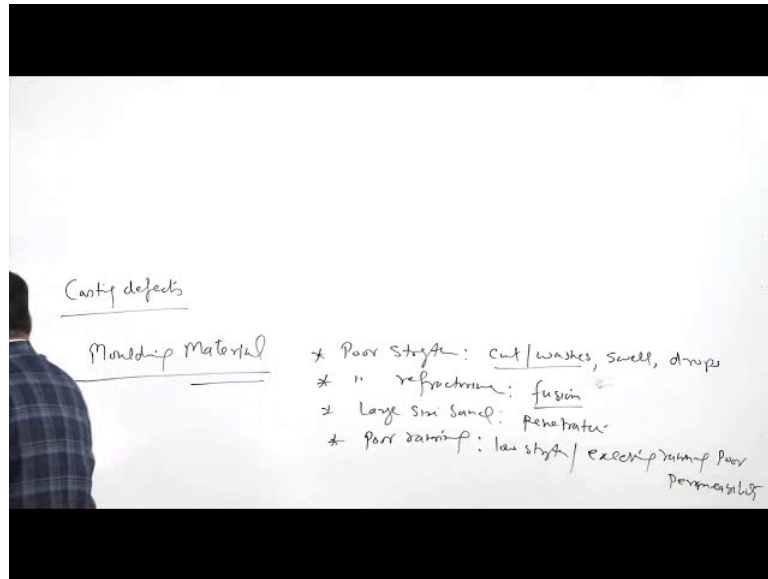 Casting defects
Moulding Material
* Poor strgth: cut/washes, swell, drops
* " refractoriness: fusion
* Large size sand: Penetration
* Poor ramming: low strgth/ excessive ramming Poor
Permeability